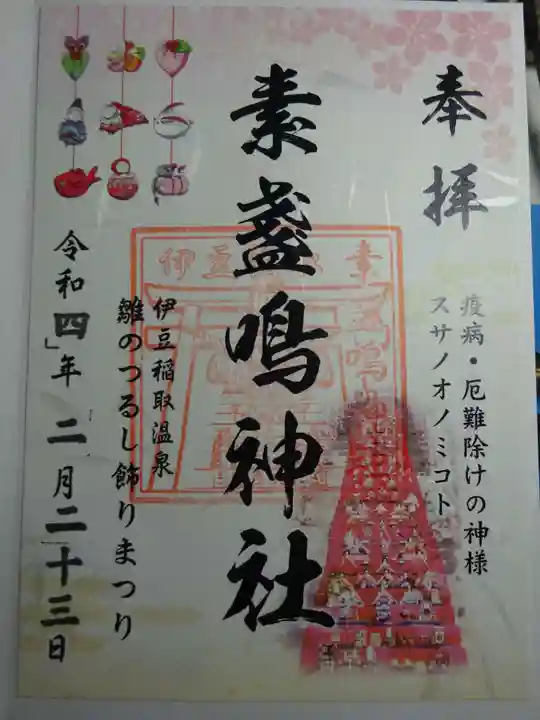 奉拝
疫病・厄難除けの神様
スサノオノミコト
素盞鳴神社
伊豆稲取温泉
雛のつるし飾りまつり
令和四年二月二十三日